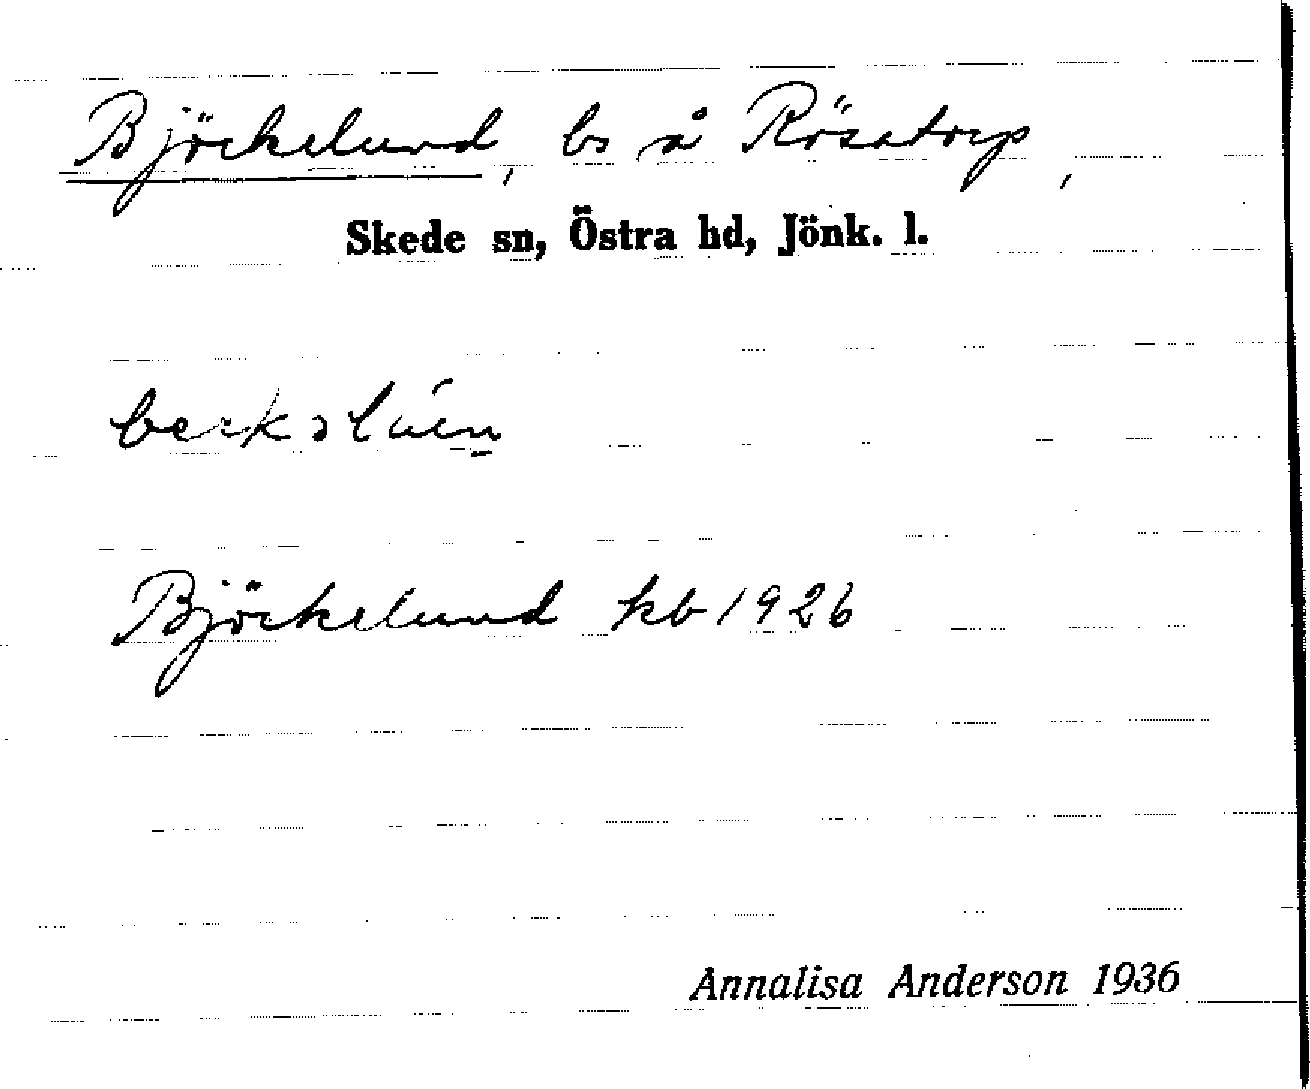 Björkelund, bs å Rösatorp,
Skede sn, Östra hd, Jönk. l.
Björkelund kb 1926
Annalisa Anderson 1936